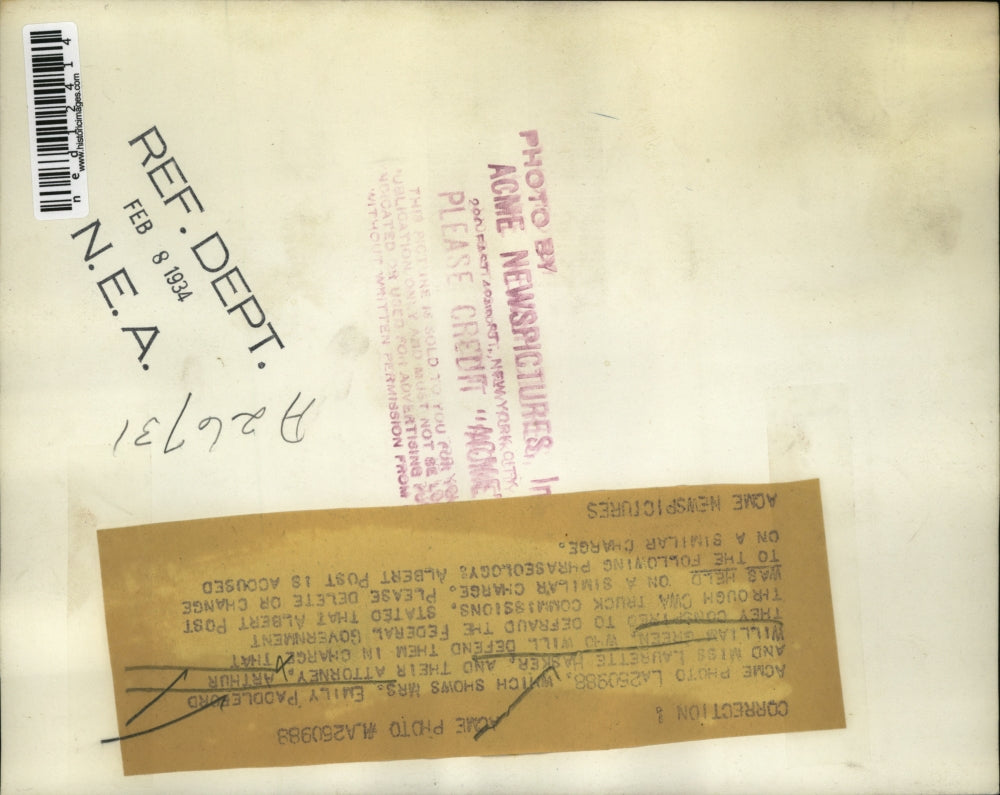 www.historicimages.com
n e d 1 2 4 1 4
REF. DEPT.
FEB 8 1934
N. E. A.
A26731
PHOTO BY
ACME NEWSPICTURES, In
NEW YORK CITY
PLEASE CREDIT "ACME"
THIS PICTURE IS SOLD TO YOU FOR YO
UBLICATION ONLY AND MUST NOT BE LO
NDICATED OR USED FOR ADVERTISING PU
WITHOUT WRITTEN PERMISSION FROM
CORRECTION! ACME PHOTO #LA250988
ACME PHOTO LA250988, WHICH SHOWS MRS. EMILY PADDLEFORD
AND MISS LAURETTE HASKER, AND THEIR ATTORNEY, ARTHUR
WILLIAM GREEN, WHO WILL DEFEND THEM IN CHARGE THAT
THEY CONSPIRED TO DEFRAUD THE FEDERAL GOVERNMENT
THROUGH CWA TRUCK COMMISSIONS. STATED THAT ALBERT POST
WAS HELD ON A SIMILAR CHARGE. PLEASE DELETE OR CHANGE
TO THE FOLLOWING PHRASEOLOGY: ALBERT POST IS ACCUSED
ON A SIMILAR CHARGE.
ACME NEWSPICTURES